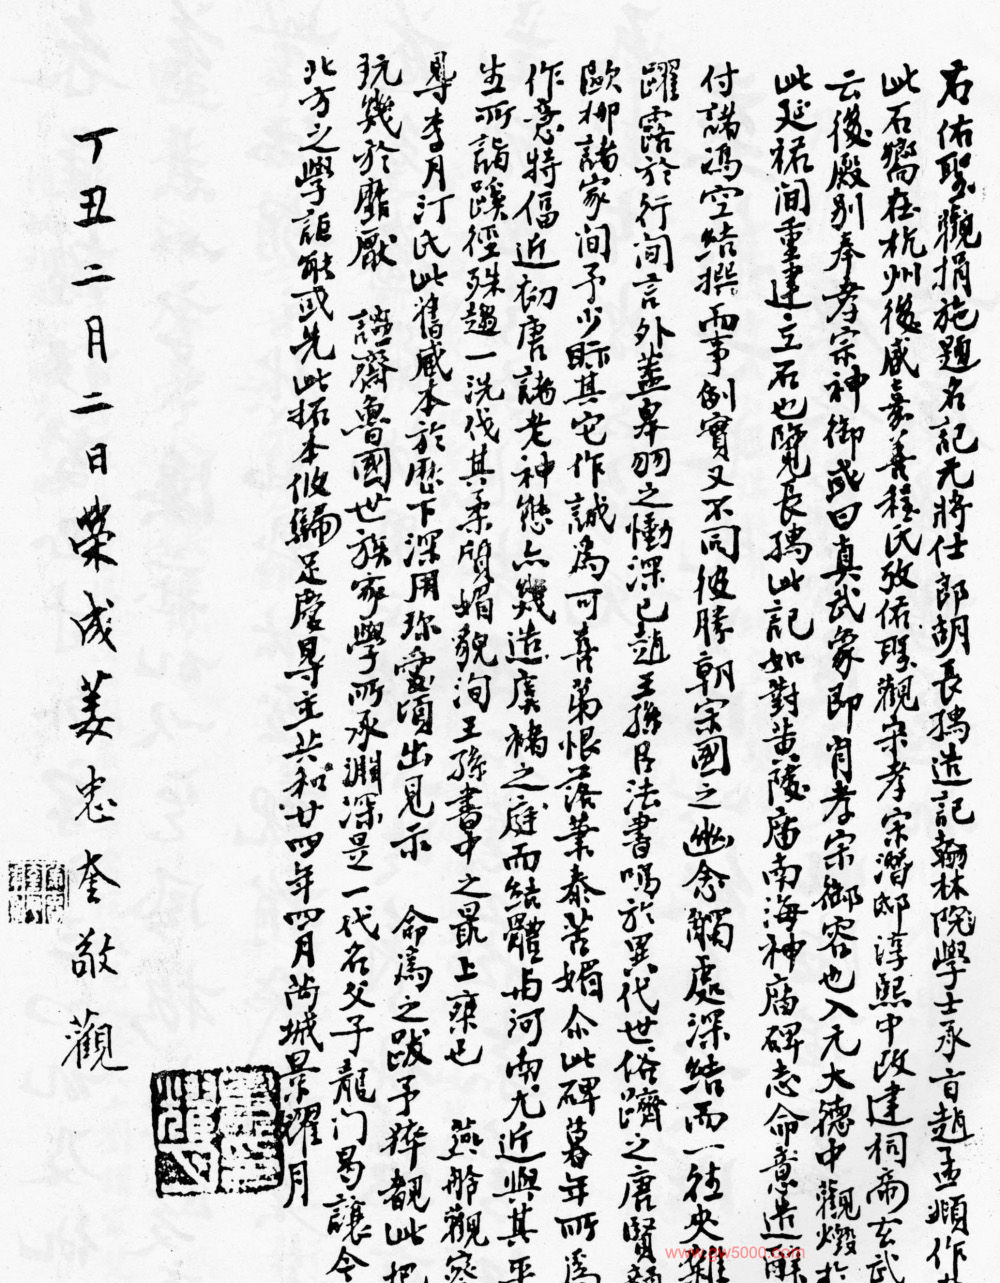 右佑聖觀捐施題名記元將仕郎胡長孺造記翰林院學士承旨趙孟頫作
此石舊在杭州後咸嘉善程氏攷佑聖觀宋孝宗潛邸淳熙中改建祠而玄武
云後殿別奉孝宗神御或曰真武象即肖孝宗御容也入元大德中觀燬
此延祐間重建立石也覽長孺此記如對黃陵廟南海神廟碑志命意造
付諸馮空結撰而事例實又不同彼勝朝宗國之幽念觸處深結而一往
躍露於行間言外蓋皋羽之慟深已趙王孫存法書鳴於異代世俗躋之唐賢
歐柳諸家間予少眎其它作誠為可喜第恨落筆泰苦媚尒此碑暮年所為
作意特偪近初唐諸老神態亦幾造虞褚之庭而結體與河南尤近與其平
生所詣蹊徑殊趨一洗伐其柔閒媚貌洵王孫書中之最上乘也 燕舲觀察
㝵李月汀氏此舊咸本於歷下深用珍愛頃出見示 命為之跋予猝覩此
玩幾於饜厭 謐齋魯國世族家學所承淵深是一代名父子龍门曷讓今
北方之學詎能或先此拓本攸歸足慶㝵主共和廿四年四月苪城景耀月
丁丑二月二日榮成姜忠奎敬觀
www.gw5000.com